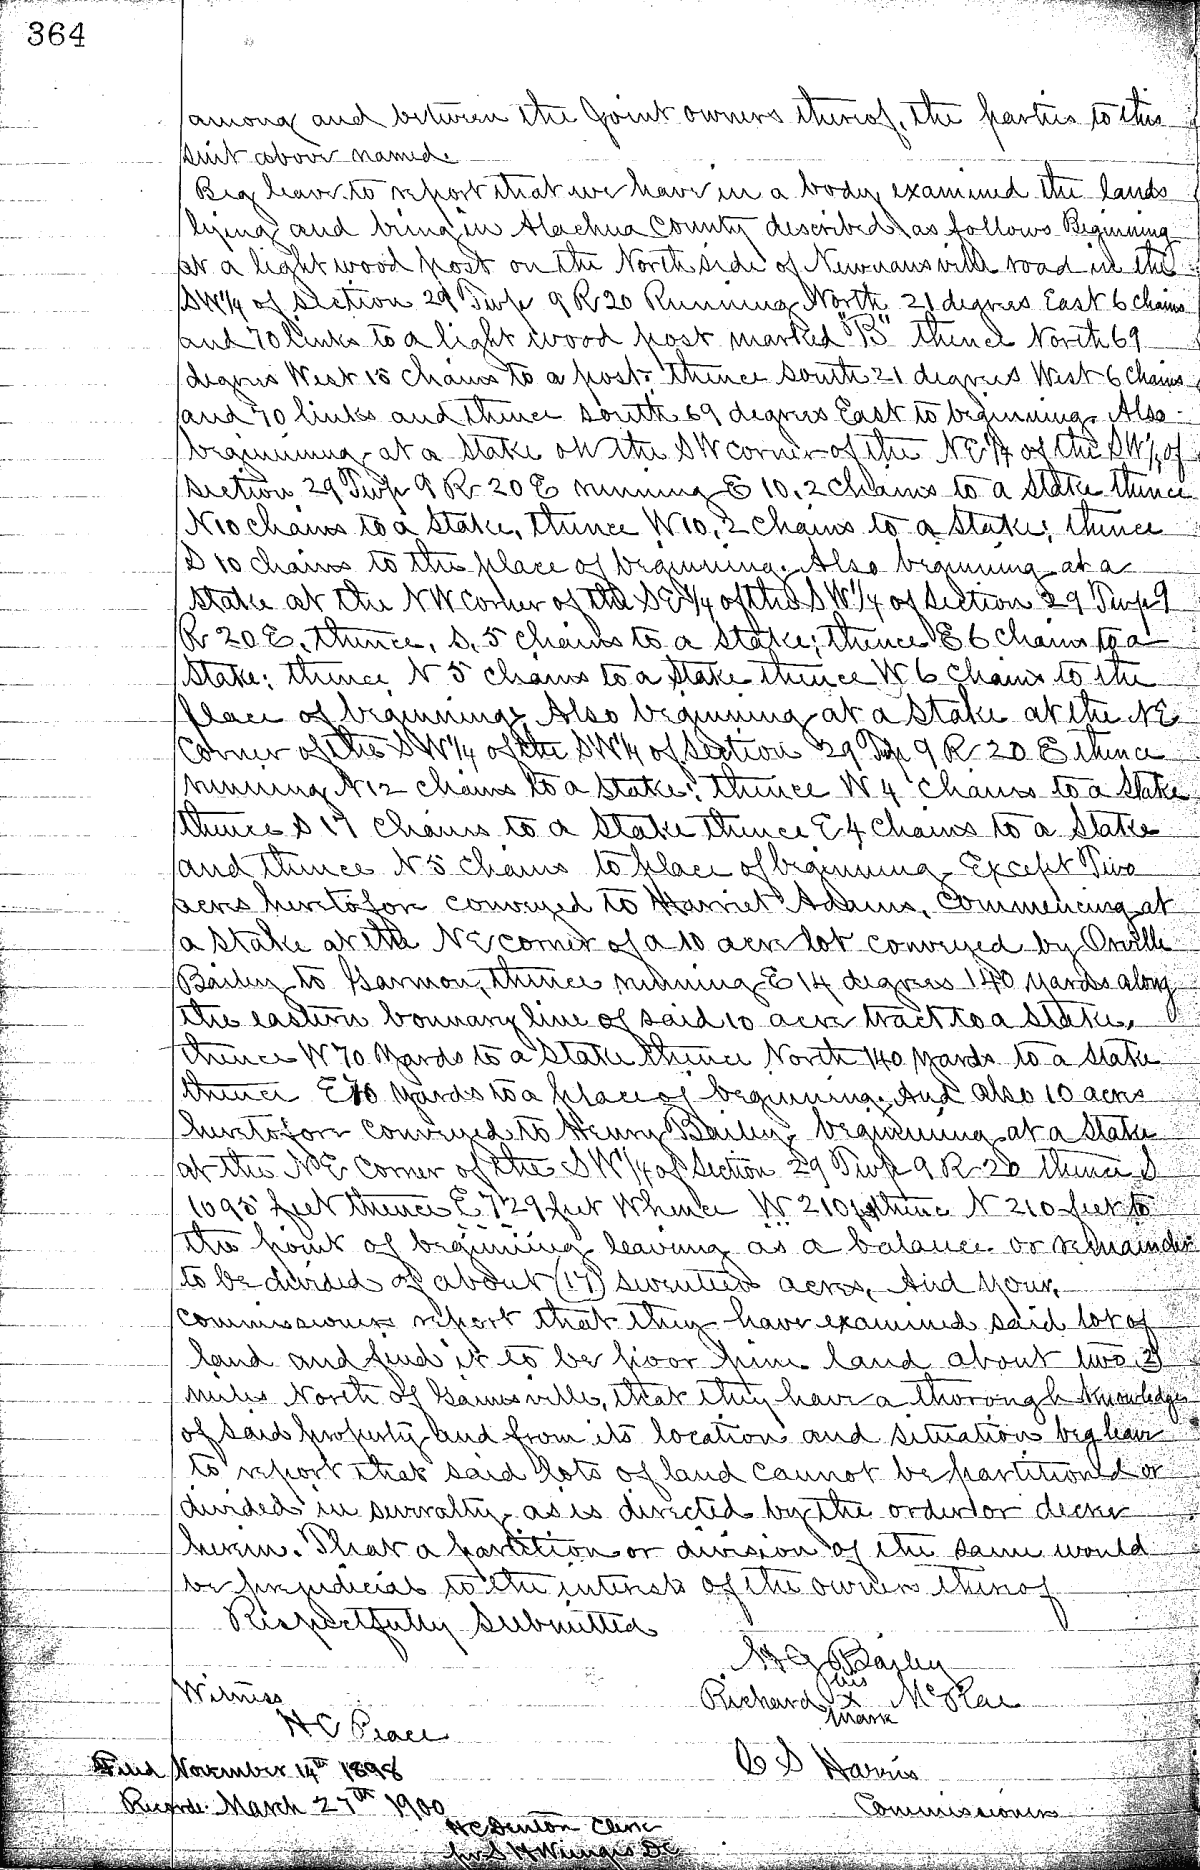 364
among and between the Joint owners thereof, the parties to this
suit above named.
Beg leave to report that we have in a body examined the lands
lying and being in Alachua County described as follows Beginning
at a light wood post on the North side of Newnansville road in the
SW1/4 of Section 29 Twp 9 R 20 Running North 21 degrees East 6 chains
and 70 links to a light wood post marked "B" thence North 69
degrees West 15 chains to a post. thence South 21 degrees West 6 chains
and 70 links and thence South 69 degrees East to beginning. Also
beginning at a stake on the SW corner of the NE 1/4 of the SW 1/4 of
Section 29 Twp 9 R 20 E running E 10.2 chains to a stake thence
N 10 chains to a stake, thence W 10.2 chains to a stake; thence
S 10 chains to the place of beginning. Also beginning at a
stake at the NW corner of the SE 1/4 of the SW 1/4 of Section 29 Twp 9
R 20 E, thence, S. 5 chains to a stake; thence E 6 chains to a
stake; thence N 5 chains to a stake thence W 6 chains to the
place of beginning, Also beginning at a stake at the NE
corner of the SW 1/4 of the SW 1/4 of Section 29 Twp 9 R 20 E thence
running N 12 chains to a stake; thence W 4 chains to a stake
thence S 17 chains to a stake thence E 4 chains to a stake
and thence N 5 chains to place of beginning. Except Two
acres heretofore conveyed to Harriet Adams, Commencing at
a stake at the NE corner of a 10 acre lot conveyed by Orville
Bailey to Garmon, thence running E 14 degrees 140 yards along
the eastern bounnary line of said 10 acre tract to a stake,
thence W 70 yards to a stake thence North 140 yards to a stake
thence E 70 yards to a place of beginning. And also 10 acres
heretofore conveyed to Henry Bailey, beginning at a stake
at the NE corner of the SW 1/4 of Section 29 Twp 9 R 20 thence S
1095 feet thence E 729 feet Whence W 210 thence N 210 feet to
the point of beginning leaving as a balance or remainder
to be divided of about (17) seventeen acres, And your,
commissioners report that they have examined said lot of
land and find it to be poor pine land about two 2
miles North of Gainesville, that they have a thorough knowledge
of said property and from its location and situation beg leave
to report that said lots of land cannot be partitioned or
divided in severalty as is directed by the order or decree
herein. That a partition or division of the same would
be prejudicial to the interests of the owners thereof
Respectfully Submitted
H G Bailey
his
Witness Richard X McRae
mark
H C Peace
Filed November 14th 1898 C S Harris
Record. March 27th 1900 Commissioners
H C Denton Clerk
per S H Wienges DC